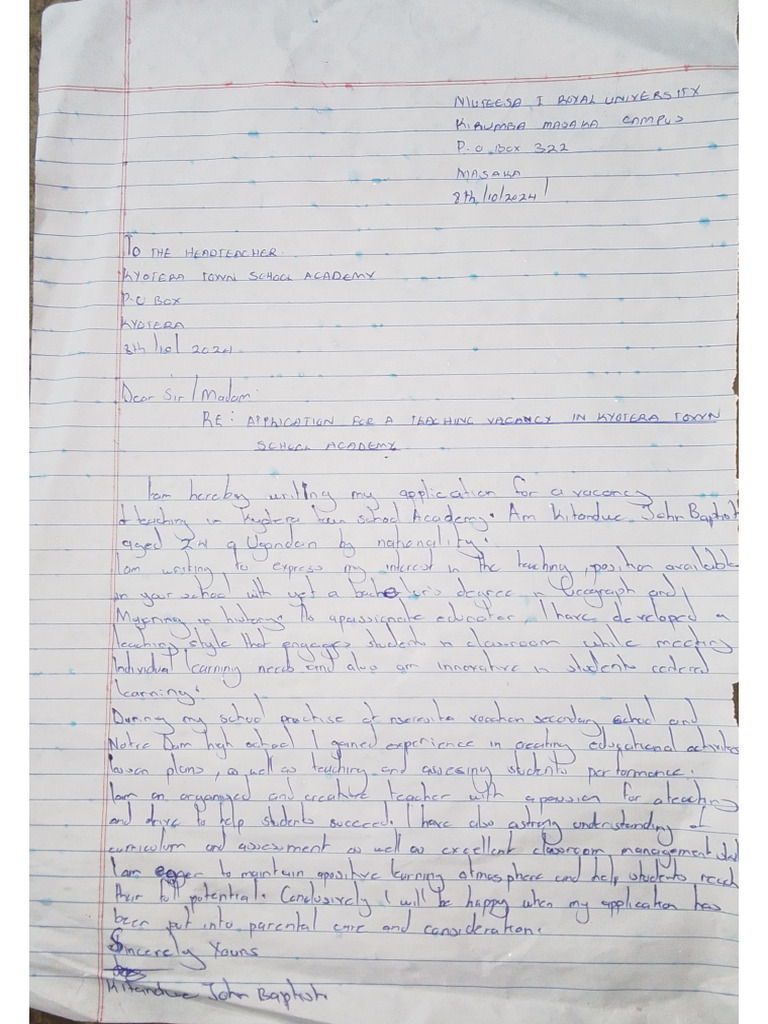 MUTEESA I ROYAL UNIVERSITY
KIRUMBA MASAKA CAMPUS
P.O BOX 322
MASAKA
8th/10/2024
TO THE HEADTEACHER.
KYOTERA TOWN SCHOOL ACADEMY
P.O BOX
KYOTERA
8th/10/2024
Dear Sir/Madam.
RE: APPLICATION FOR A TEACHING VACANCY IN KYOTERA TOWN
SCHOOL ACADEMY.
Iam hereby writing my application for a vacancy
of teaching in Kyotera town school Academy. Am John Baptist
aged 24 a Ugandan by nationality.
Iam writing to express my interest in the teaching, position available
in your school with yet a degree in and
in history. As apassionate educator, I have developed a
teaching style that engages students in classroom while meeting
Individual learning needs and also am innovative in students centered
learning.
During my school practise at secondary school and
Notre Dam high school I gained experience in creating educational activities
lesson plans, as well as teaching and assesing students performance.
Iam an organised and creative teacher with apassion for ateaching
and drive to help students succeed. I have also astrong understanding of
curriculum and assessment as well as excellent classroom management
Iam eager to maintain apositive learning atmosphere and help students reach
their full potential. Conclusively I will be happy when my application has
been put into parental care and consideration.
Sincerely Yours
John Baptist